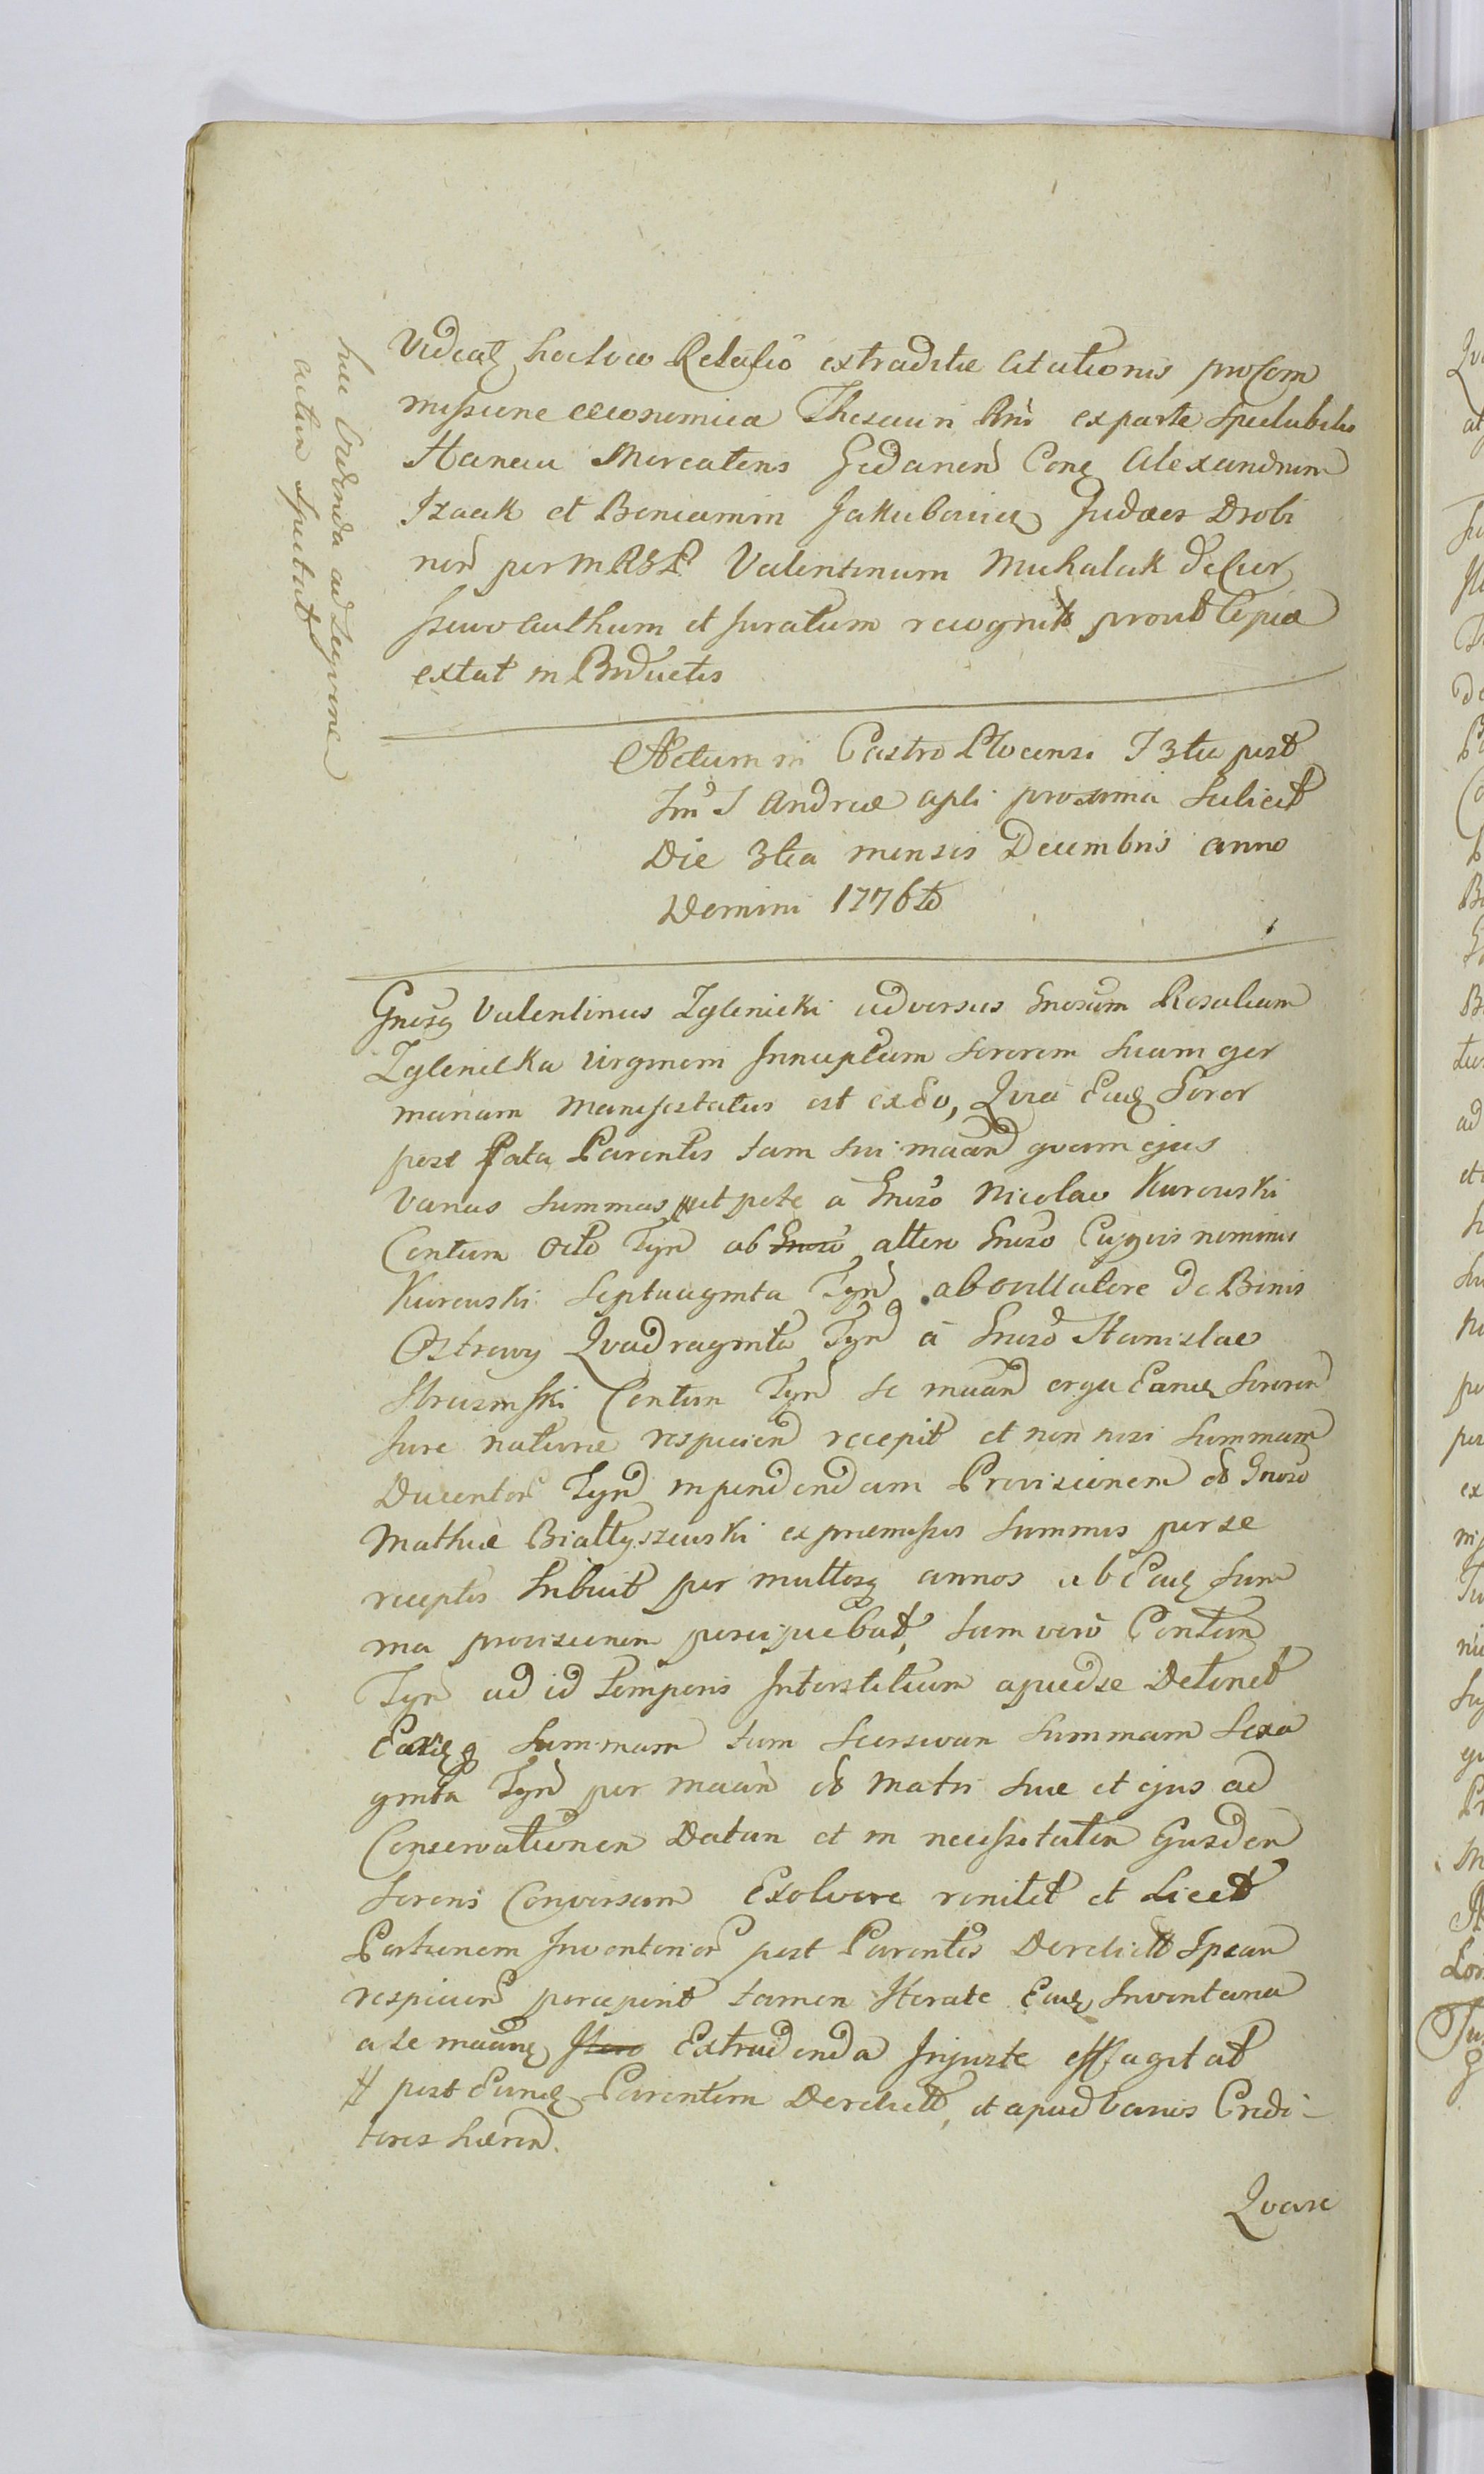 hac Credenda ad Legione
autem Spectat
Videat hoc loco Relatio extraditæ Citationis pro Com
missione œconomica Thesauri Rni ex parte Spectabilis
Haneau Mercatoris Gedanen Con Alexandrum
Izaak et Beniamin Jakubowicz Judæos Drobi
nen per MRGL Valentinum Michalak de Cier
szewo authum et juratum recognit prout Copia
extat in Inductis
Actum in Castro Plocensi f 3tia post
fm S Andreæ apli proxima scilicet
Die 3tia mensis Decembris anno
Domini 1776to
Gnosus Valentinus Zglenicki adversus Gnosam Rosaliam
Zglenicka virginem Innuptam sororem suam ger
manam manifestatus est ex eo, Quia Eadem Soror
post Fata Parentis tam sui man quam ejus
varias summas utpote à Gnoso Nicolao Kurowski
Centum octo Tyn ab Gnoso altero Gnoso Cujusvis nominis
Kurowski Septuaginta Tyn ab ovillatore de Binis
Ostrowy Quadraginta Tyn à Gnoso Stanislao
Struzinski Centum Tyn se man erga Eandem Sororem
Jure naturæ respicien recepit et non nisi Summam
Ducentor Tyn impendendam Provisionem Gnoso
Mathiæ Białłyszewski ex præmissis summis per se
receptis tribuit per multos annos ab Eadem Sum
ma provisionem percipiebat, tum vero Centum
Tyn ad id temporis Interstitium apud se Detinet
Summam tum Seorsivam Summam Sexa
ginta Tyn per man Matri suæ et ejus ad
Conservationem Datam et in necessitatem Ejusdem
Sororis Conversam Exolvere renitet et Licet
Portionem Inventarior post Parentes Derelict Ipsam
respicien percepit tamen Iterate Eadem Inventaria
a se Extradenda Injuste effagitat
# post Eundem Parentem Derelict, et apud varios Credi-
tores hæren.
Quare